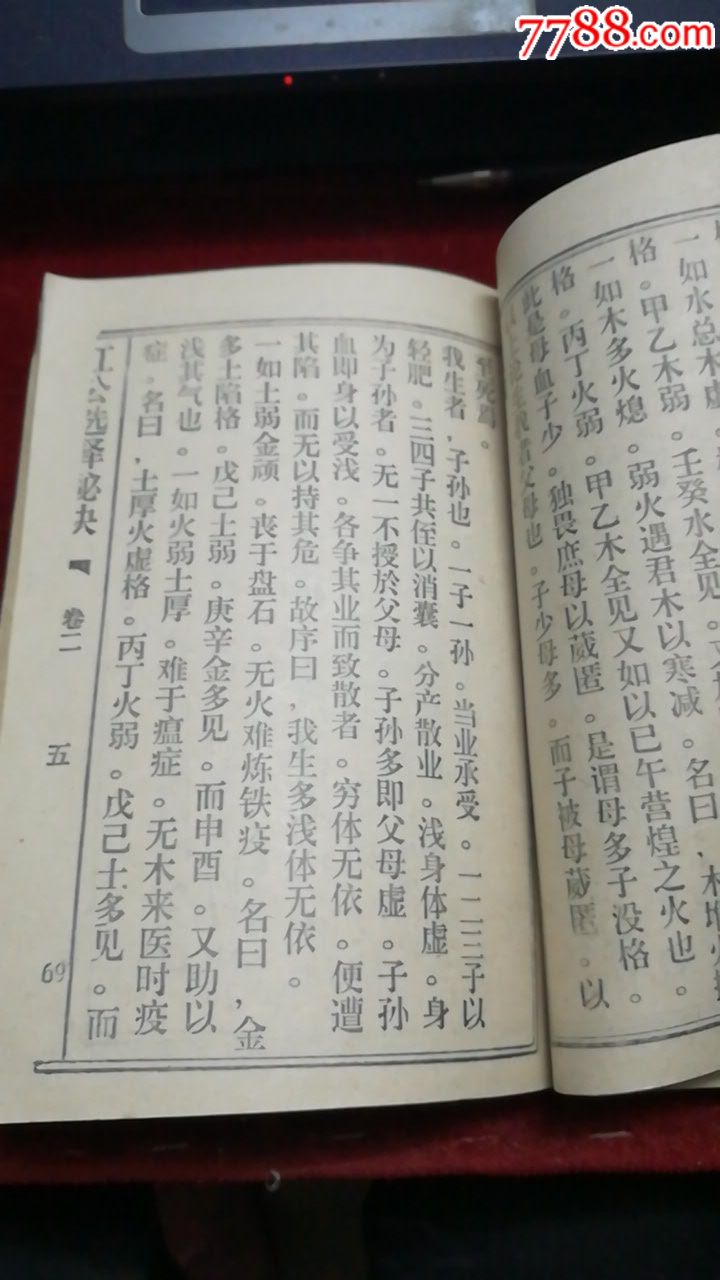 7788.com
一如水总木虚
格。甲乙木弱。壬癸水全见。
一如木多火熄。弱火遇君木以寒减。名曰,木堆火
格。丙丁火弱。甲乙木全见又如以巳午营煌之火也。
此是母血子少。独畏庶母以葳匿。是谓母多子没格。
父母也。子少母多。而子被母葳匿。以
我生者,子孙也。一子一孙。当业承受。一二三子以
轻肥。三四子共侄以消囊。分产散业。浅身体虚。身
为子孙者。无一不授於父母。子孙多即父母虚。子孙
血即身以受浅。各争其业而致散者。穷体无依。便遭
其陷。而无以持其危。故序曰,我生多浅体无依。
一如土弱金顽。丧于盘石。无火难炼铁疫。名曰,金
多土陷格。戊己土弱。庚辛金多见。而申酉。又助以
浅其气也。一如火弱土厚。难于瘟症。无木来医时疫
症。名曰,土厚火虚格。丙丁火弱。戊己土多见。而
江公选择秘决 卷二 五
69